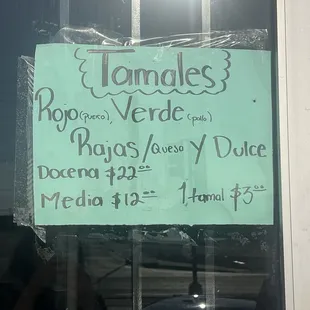 Tamales
Rojo (puerco), Verde (pollo)
Rajas/Queso Y Dulce
Docena $22.00
Media $12.00 1 tamal $3.00